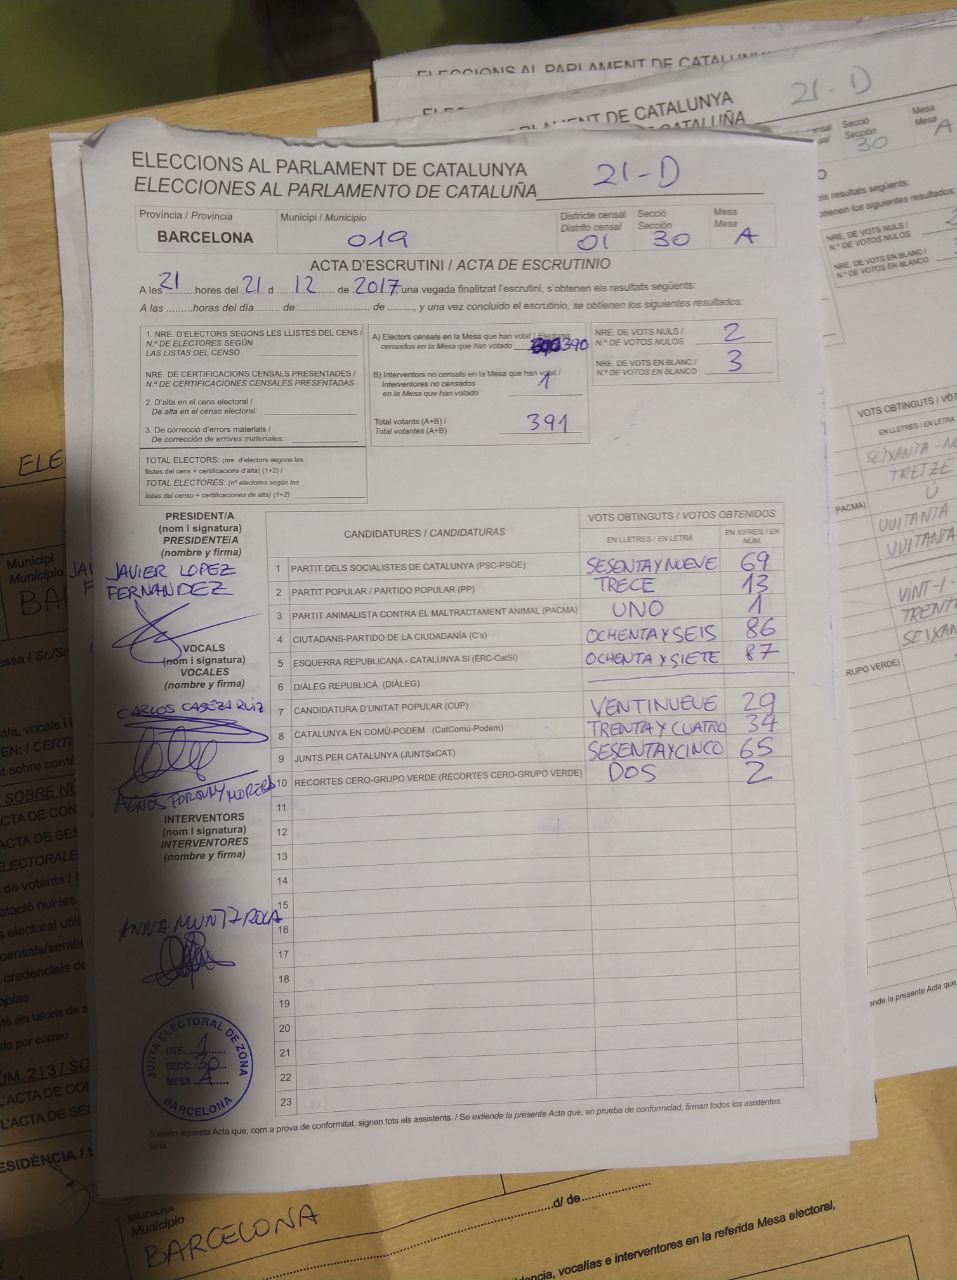 ELECCIONS AL PARLAMENT DE CATALUNYA
21-D
Secció
Sección
30
Mesa
Mesa
A
ELECCIONS AL PARLAMENT DE CATALUNYA
ELECCIONES AL PARLAMENTO DE CATALUÑA
21-D
Província / Provincia
BARCELONA
Municipi / Municipio
019
Districte censal
Distrito censal
01
Secció
Sección
30
Mesa
Mesa
A
ACTA D'ESCRUTINI / ACTA DE ESCRUTINIO
A les 21 hores del 21 d 12 de 2017 una vegada finalitzat l'escrutini, s'obtenen els resultats següents:
A las ......... horas del día ....... de ...................... de ........, y una vez concluido el escrutinio, se obtienen los siguientes resultados:
1. NRE. D'ELECTORS SEGONS LES LLISTES DEL CENS /
N.º DE ELECTORES SEGÚN
LAS LISTAS DEL CENSO
NRE. DE CERTIFICACIONS CENSALS PRESENTADES /
N.º DE CERTIFICACIONES CENSALES PRESENTADAS
2. D'alta en el cens electoral /
De alta en el censo electoral:
3. De correcció d'errors materials /
De corrección de errores materiales:
TOTAL ELECTORS: (nre. d'electors segons les
llistes del cens + certificacions d'alta) (1+2) /
TOTAL ELECTORES: (nº electores según las
listas del censo + certificaciones de alta) (1+2)
A) Electors censats en la Mesa que han votat / Electores
censados en la Mesa que han votado 390
B) Interventors no censats en la Mesa que han votat /
Interventores no censados
en la Mesa que han votado
1
Total votants (A+B) /
Total votantes (A+B)
391
NRE. DE VOTS NULS /
N.º DE VOTOS NULOS
2
NRE. DE VOTS EN BLANC /
N.º DE VOTOS EN BLANCO
3
PRESIDENT/A
(nom i signatura)
PRESIDENTE/A
(nombre y firma)
JAVIER LOPEZ
FERNANDEZ
VOCALS
(nom i signatura)
VOCALES
(nombre y firma)
CARLOS CABEZA RUIZ
INTERVENTORS
(nom i signatura)
INTERVENTORES
(nombre y firma)
CANDIDATURES / CANDIDATURAS
VOTS OBTINGUTS / VOTOS OBTENIDOS
EN LLETRES / EN LETRA
EN XIFRES / EN NÚM.
1 PARTIT DELS SOCIALISTES DE CATALUNYA (PSC-PSOE) SESENTA Y NUEVE 69
2 PARTIT POPULAR / PARTIDO POPULAR (PP) TRECE 13
3 PARTIT ANIMALISTA CONTRA EL MALTRACTAMENT ANIMAL (PACMA) UNO 1
4 CIUTADANS-PARTIDO DE LA CIUDADANÍA (C's) OCHENTA Y SEIS 86
5 ESQUERRA REPUBLICANA - CATALUNYA SÍ (ERC-CatSí) OCHENTA Y SIETE 87
6 DIÀLEG REPUBLICÀ (DIÀLEG)
7 CANDIDATURA D'UNITAT POPULAR (CUP) VENTINUEVE 29
8 CATALUNYA EN COMÚ-PODEM (CatComú-Podem) TRENTA Y CUATRO 34
9 JUNTS PER CATALUNYA (JUNTSxCAT) SESENTA Y CINCO 65
10 RECORTES CERO-GRUPO VERDE (RECORTES CERO-GRUPO VERDE) DOS 2
11
12
13
14
15
16
17
18
19
20
21
22
23
JUNTA ELECTORAL DE ZONA
DTE. 1
SECC. 30
MESA A
BARCELONA
S'estén aquesta Acta que, com a prova de conformitat, signen tots els assistents. / Se extiende la presente Acta que, en prueba de conformidad, firman todos los asistentes.
NRE. DE VOTS NULS /
N.º DE VOTOS NULOS
NRE. DE VOTS EN BLANC /
N.º DE VOTOS EN BLANCO
EN LLETRES / EN LETRA
TRETZE
PACMA)
VUITANTA
VUITANTA
Municipi
Municipio
BARCELONA
d/ de
vocalías e interventores en la referida Mesa electoral,